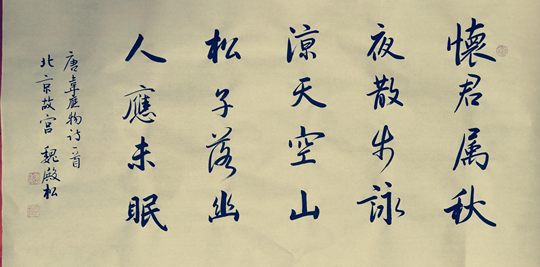 懷君属秋
夜散步詠
涼天空山
松子落幽
人應未眠
唐韋應物诗一首
北京故宫 魏殿松